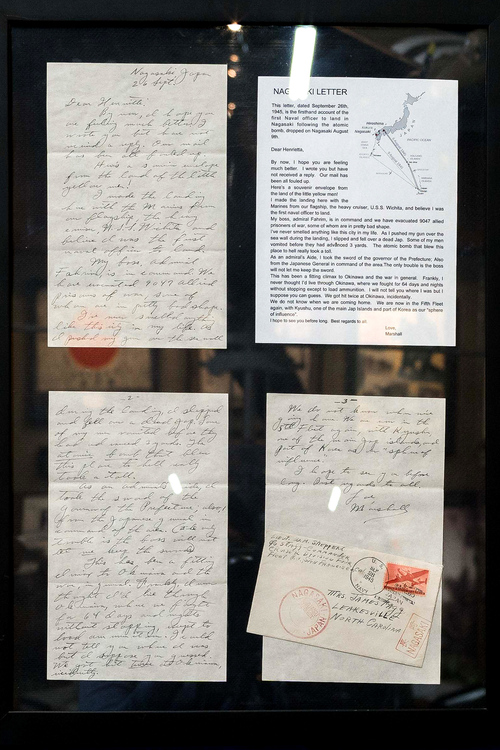 Nagasaki, Japan
26 Sept.
Dear Henrietta,
By now, I hope you
are feeling much better. I
wrote you but have not
received a reply. Our mail
has been all fouled up.
Here's a souvenir envelope
from the land of the little
yellow men!
I made the landing
with the Marines from
our flagship, the heavy
cruiser, U.S.S. Wichita and
believe I was the first
naval officer to land.
My boss, Admiral
Fahrion, is in command. We
have evacuated 9047 allied
prisoners of war, some of
whom are in pretty bad shape.
I've never smelled anything
like this city in my life. As
I pushed my gun over the sea wall
NAGASAKI LETTER
This letter, dated September 26th,
1945, is the firsthand account of the
first Naval officer to land in
Nagasaki following the atomic
bomb, dropped on Nagasaki August
9th.
Dear Henrietta,
By now, I hope you are feeling
much better. I wrote you but have
not received a reply. Our mail has
been all fouled up.
Here's a souvenir envelope from
the land of the little yellow men!
I made the landing here with the
Marines from our flagship, the heavy cruiser, U.S.S. Wichita, and believe I was
the first naval officer to land.
My boss, admiral Fahrion, is in command and we have evacuated 9047 allied
prisoners of war, some of whom are in pretty bad shape.
I've never smelled anything like this city in my life. As I pushed my gun over the
sea wall during the landing, I slipped and fell over a dead Jap. Some of my men
vomited before they had advanced 3 yards. The atomic bomb that blew this
place to hell really took a toll.
As an admiral's Aide, I took the sword of the governor of the Prefecture; Also
from the Japanese General in command of the area. The only trouble is the boss
will not let me keep the sword.
This has been a fitting climax to Okinawa and the war in general. Frankly, I
never thought I'd live through Okinawa, where we fought for 64 days and nights
without stopping except to load ammunition. I will not tell you where I was but I
suppose you can guess. We got hit twice at Okinawa, incidentally.
We do not know when we are coming home. We are now in the Fifth Fleet
again, with Kyushu, one of the main Jap Islands and part of Korea as our "sphere
of influence".
I hope to see you before long. Best regards to all.
Love,
Marshall
Hiroshima
Nagasaki
PACIFIC OCEAN
-2-
during the landing, I slipped
and fell over a dead Jap. Some
of my men vomited before they
had advanced 3 yards. The
atomic bomb that blew
this place to hell really
took a toll.
As an admiral's aide, I
took the sword of the
governor of the Prefecture; also
from the Japanese general in
command of the area. The only
trouble is the boss will not
let me keep the sword.
This has been a fitting
climax to Okinawa and the
war in general. Frankly, I never
thought I'd live through
Okinawa, where we fought
for 64 days and nights
without stopping except to
load ammunition. I will
not tell you where I was
but I suppose you can guess.
We got hit twice at Okinawa,
incidentally.
-3-
We do not know when we're
coming home. We are now in the
5th Fleet again, with Kyushu,
one of the main Jap islands, and
part of Korea as our "sphere of
influence".
I hope to see you before
long. Best regards to all.
Love,
Marshall
U.S. NAVY
SEP
1945
NAGASAKI
JAPAN
Mrs. James Ray
Leakesville
North Carolina
NAGASAKI
JAPAN
NAGASAKI